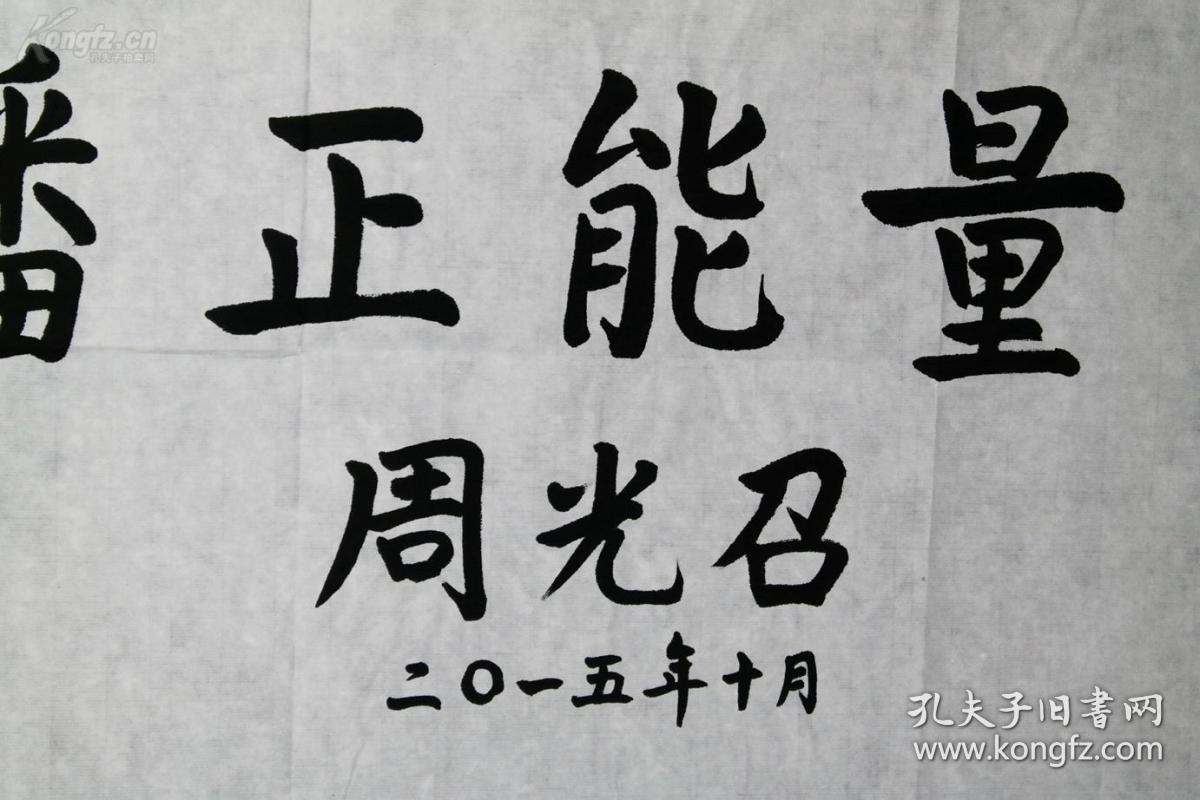 Kongfz.cn
孔夫子拍卖网
正能量
周光召
二〇一五年十月
孔夫子旧書网
www.kongfz.com